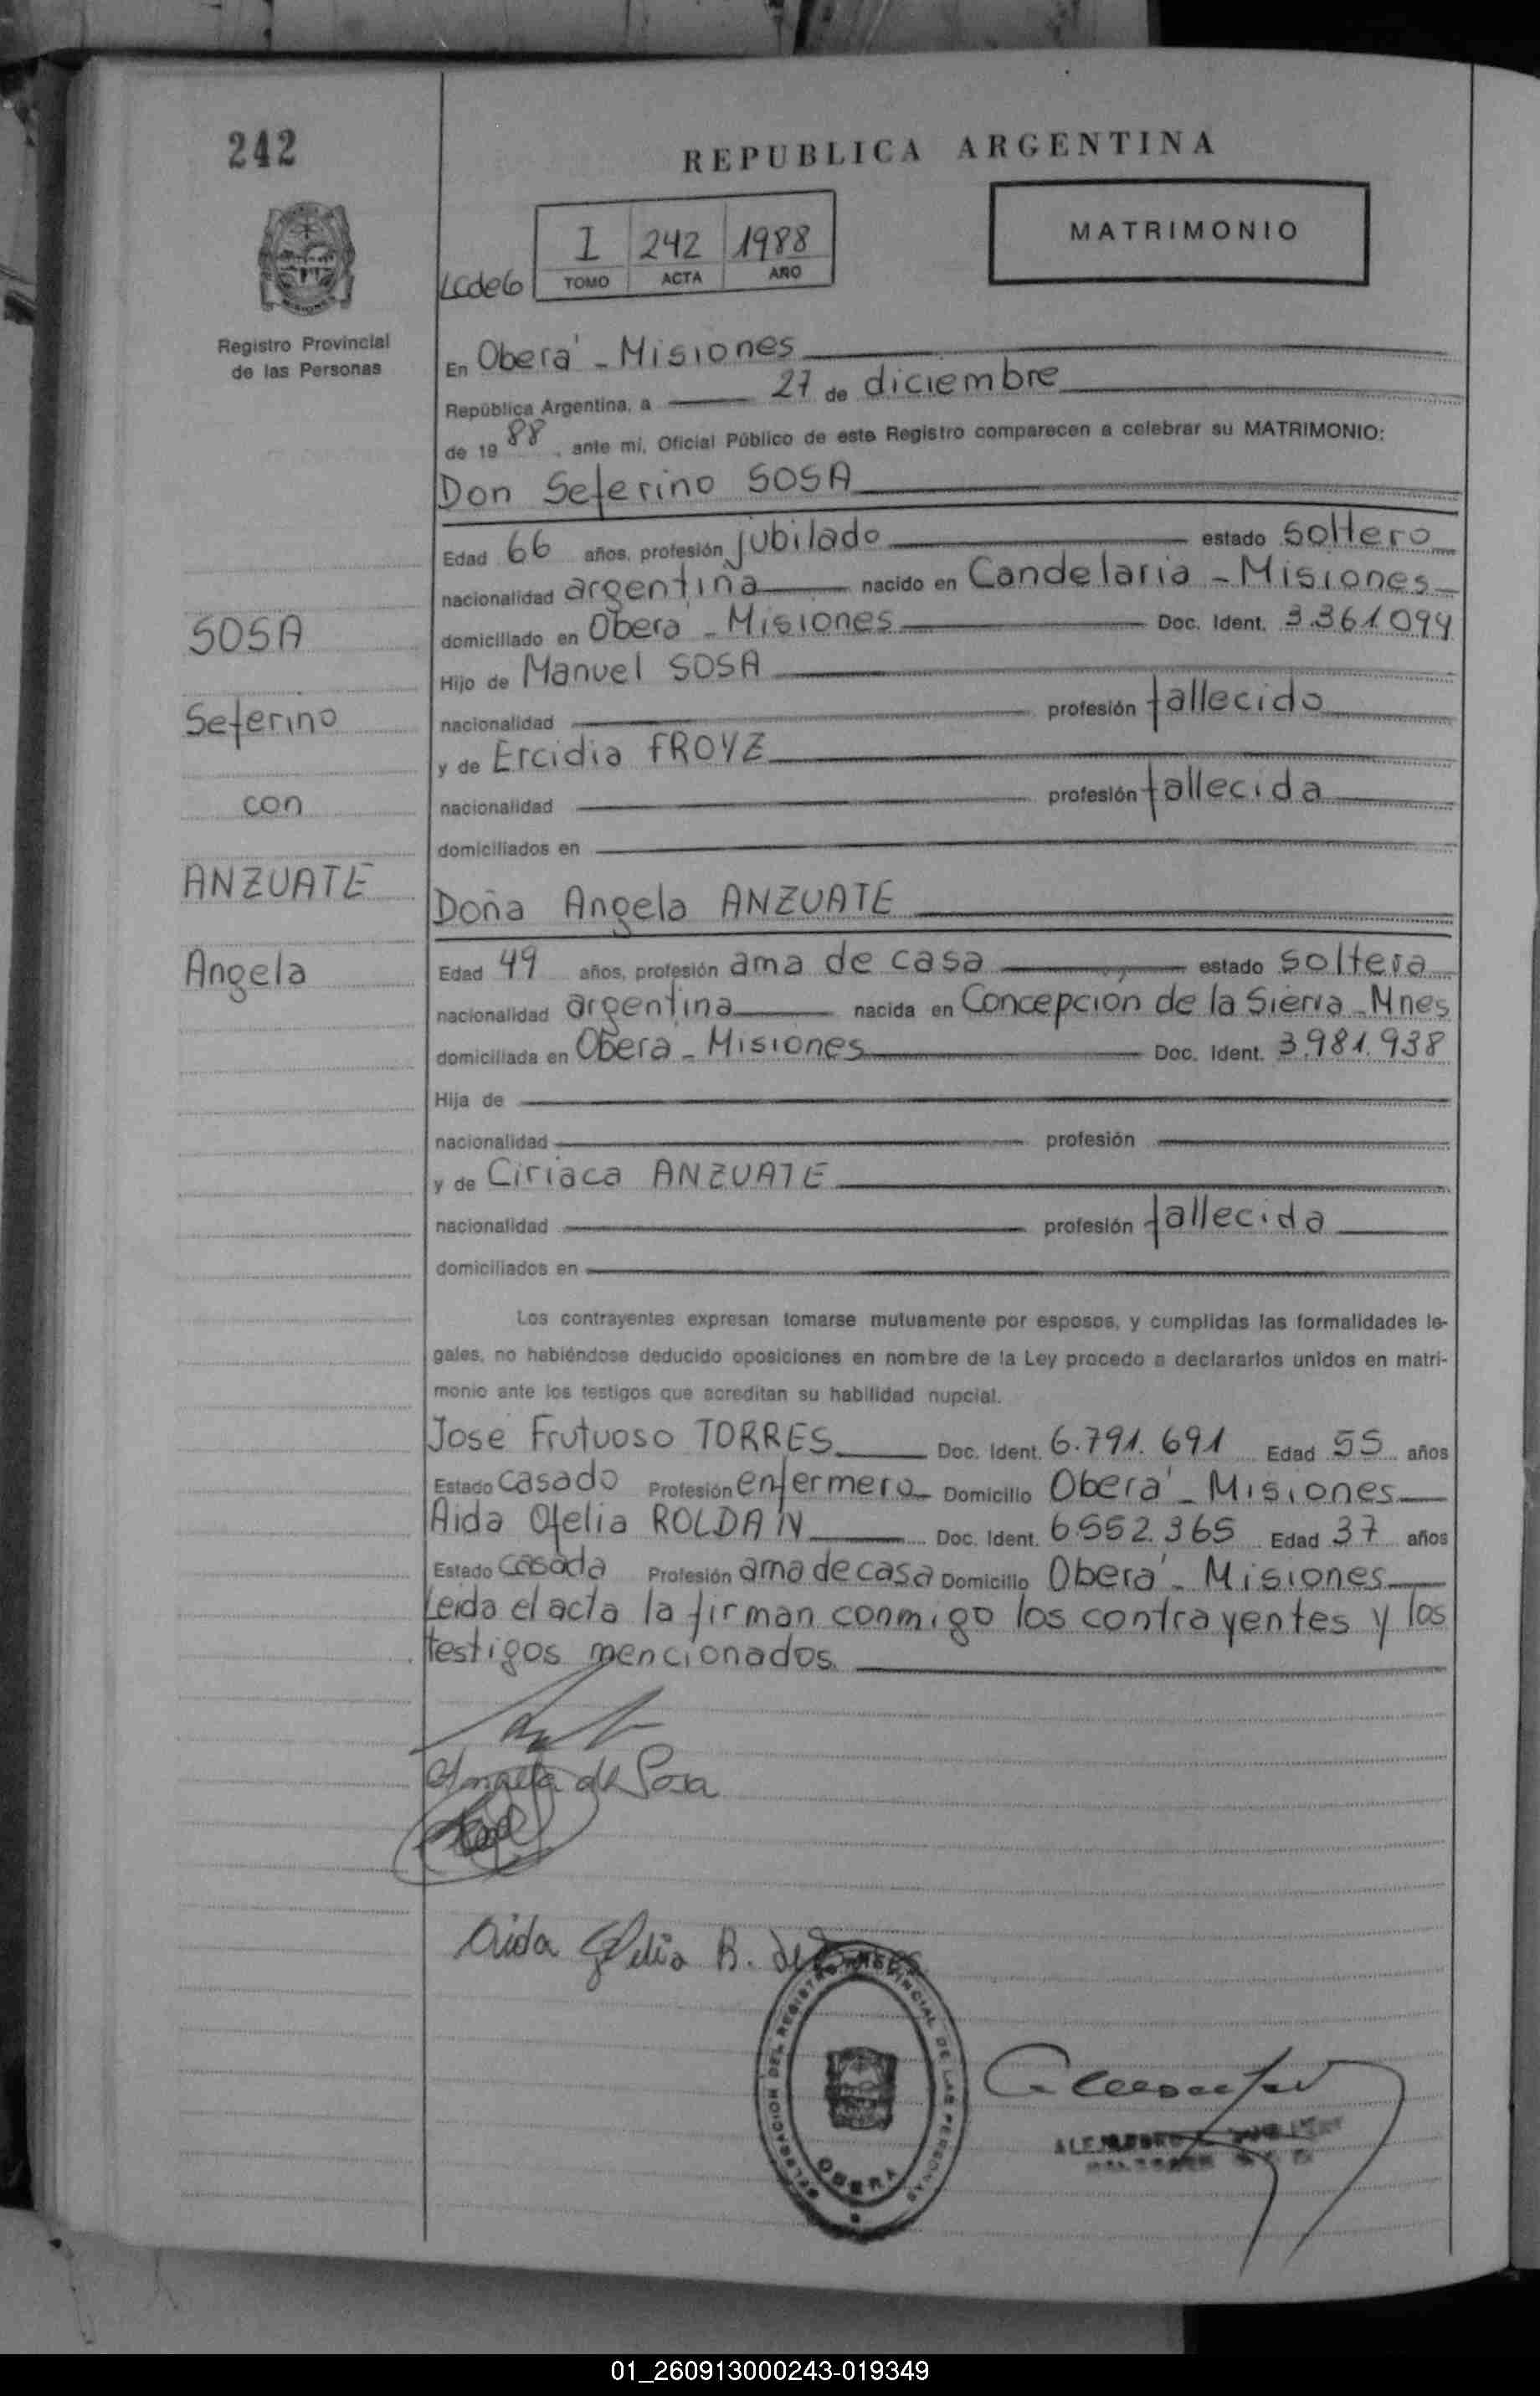 242
REPUBLICA ARGENTINA
MATRIMONIO
I 242 1988
TOMO ACTA AÑO
LCde6
Registro Provincial
de las Personas
En Oberá - Misiones
República Argentina, a 27 de diciembre
de 19 88, ante mi, Oficial Público de este Registro comparecen a celebrar su MATRIMONIO:
Don Seferino SOSA
Edad 66 años, profesión jubilado estado soltero
nacionalidad argentina nacido en Candelaria - Misiones
domiciliado en Obera - Misiones Doc. Ident. 3.361.094
Hijo de Manuel SOSA
nacionalidad profesión fallecido
y de Ercidia FROYZ
nacionalidad profesión fallecida
domiciliados en
SOSA
Seferino
con
ANZUATE
Angela
Doña Angela ANZUATE
Edad 49 años, profesión ama de casa estado soltera
nacionalidad argentina nacida en Concepción de la Sierra - Mnes
domiciliada en Oberá - Misiones Doc. Ident. 3.981.938
Hija de
nacionalidad profesión
y de Ciriaca ANZUATE
nacionalidad profesión fallecida
domiciliados en
Los contrayentes expresan tomarse mutuamente por esposos, y cumplidas las formalidades le-
gales, no habiéndose deducido oposiciones en nombre de la Ley procedo a declararlos unidos en matri-
monio ante los testigos que acreditan su habilidad nupcial.
Jose Frutuoso TORRES Doc. Ident. 6.791.691 Edad 55 años
Estado casado Profesión enfermero Domicilio Oberá - Misiones
Aida Ofelia ROLDAN Doc. Ident. 6.552.365 Edad 37 años
Estado casada Profesión ama de casa Domicilio Oberá - Misiones
Leida el acta la firman conmigo los contrayentes y los
testigos mencionados.
Angela de Sosa
Aida Ofelia R. de
DELEGACION DEL REGISTRO PROVINCIAL DE LAS PERSONAS
OBERA
01_260913000243-019349